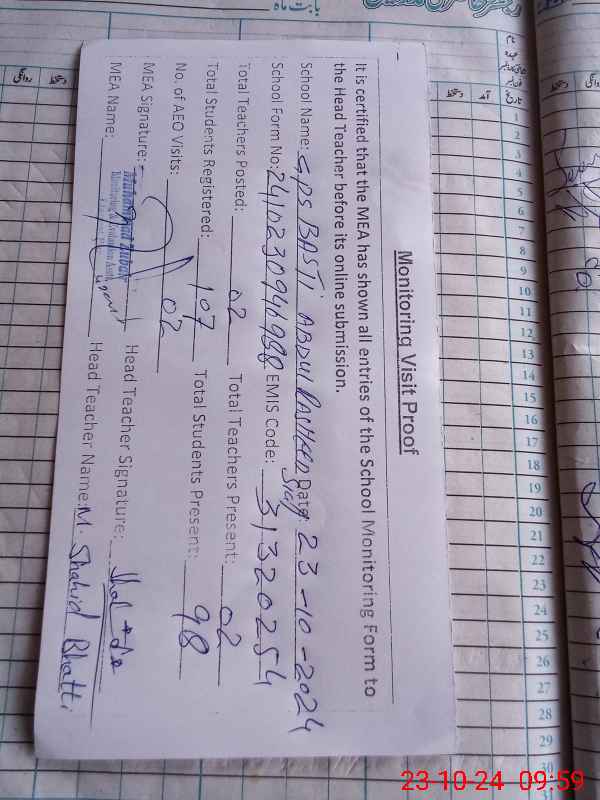 بابت ماہ
Monitoring Visit Proof
It is certified that the MEA has shown all entries of the School Monitoring Form to
the Head Teacher before its online submission.
School Name: GPS BASTI ABDUL RASHEED Date: 23-10-2024
School Form No: EMIS Code: 31320254
Total Teachers Posted: 02 Total Teachers Present: 02
Total Students Registered: 107 Total Students Present: 98
No. of AEO Visits: 02
MEA Signature: Head Teacher Signature:
MEA Name: Head Teacher Name: M. Shahid Bhatti
نام
عہدہ
تاریخ
آمد
دستخط
دستخط
روانگی
1
2
3
4
5
6
7
8
9
10
11
12
13
14
15
16
17
18
19
20
21
22
23
24
25
26
27
28
29
30
31
23-10-24 09:59